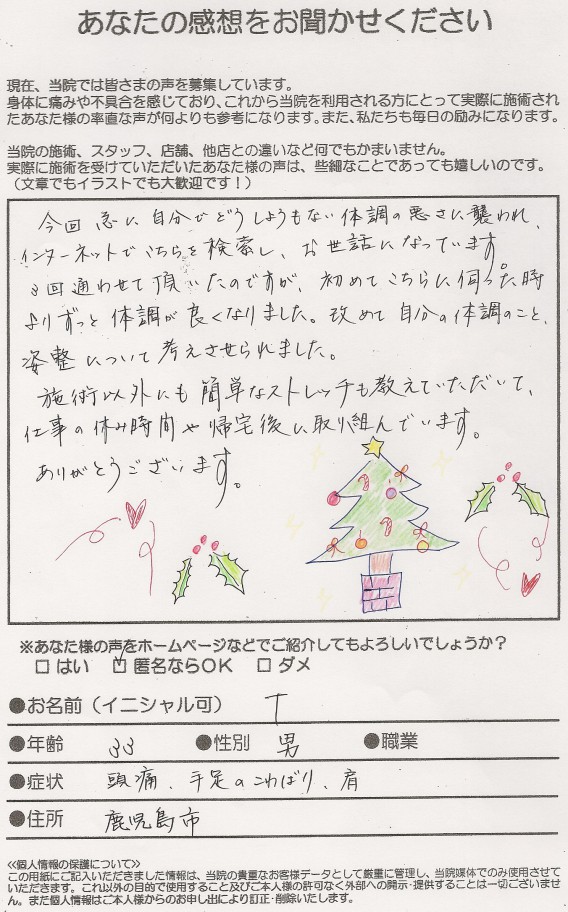 あなたの感想をお聞かせください
現在、当院では皆さまの声を募集しています。
身体に痛みや不具合を感じており、これから当院を利用される方にとって実際に施術され
たあなた様の率直な声が何よりも参考になります。また、私たちも毎日の励みになります。
当院の施術、スタッフ、店舗、他店との違いなど何でもかまいません。
実際に施術を受けていただいたあなた様の声は、些細なことであっても嬉しいのです。
（文章でもイラストでも大歓迎です！）
今回 急に自分でどうしようもない体調の悪さに襲われ、
インターネットでこちらを検索し、お世話になっています。
3回通わせて頂いたのですが、初めてこちらに伺った時
よりずっと体調が良くなりました。改めて自分の体調のこと、
姿整について考えさせられました。
施術以外にも簡単なストレッチも教えていただいて、
仕事の休み時間や帰宅後に取り組んでいます。
ありがとうございます。
※あなた様の声をホームページなどでご紹介してもよろしいでしょうか？
□ はい ☑ 匿名ならOK □ ダメ
●お名前（イニシャル可） T
●年齢 33 ●性別 男 ●職業
●症状 頭痛、手足のこわばり、肩
●住所 鹿児島市
≪個人情報の保護について≫
この用紙にご記入いただきました情報は、当院の貴重なお客様データとして厳重に管理し、当院媒体でのみ使用させて
いただきます。これ以外の目的で使用すること及びご本人様の許可なく外部への開示・提供することは一切ございませ
ん。また個人情報はご本人様からのお申し出により訂正・削除いたします。